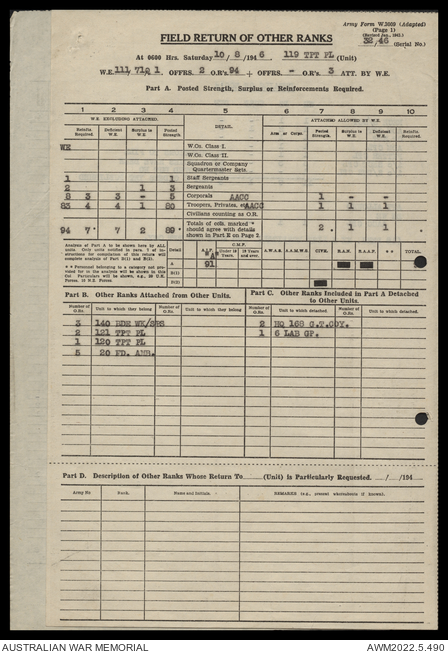 Army Form W.3009 (Adapted)
(Page 1)
(Revised Jan., 1945.)
FIELD RETURN OF OTHER RANKS
32/46 (Serial No.)
At 0600 Hrs. Saturday 10/8/1946 119 TPT PL (Unit)
OFFRS. 2 O.R's 94 + OFFRS. - O.R's. 3 ATT. BY W.E.
Part A. Posted Strength, Surplus or Reinforcements Required.
1 2 3 4 5 6 7 8 9 10
W.E. EXCLUDING ATTACHED. ATTACHED ALLOWED BY W.E.
Reinfts. Required. Deficient W.E. Surplus to W.E. Posted Strength. DETAIL. Arm or Corps. Posted Strength. Surplus to W.E. Deficient W.E. Reinfts. Required.
WE W.Os. Class I.
W.Os. Class II.
Squadron or Company Quartermaster Sgts.
1 1 Staff Sergeants
2 1 3 Sergeants
8 3 3 - 5 Corporals AACC 1 - -
83 4 4 1 80 Troopers, Privates, AACC 1 1 1
Civilians counting as O.R.
94 7 * 7 2 89 * Totals of cols. marked * should agree with details shown in Part E on Page 2. 2 1 1
Analysis of Part A to be shown here by ALL units.
Detail A.I.F. "A" C.M.F. Under 19 Years. 19 Years and over. A.W.A.S. A.A.M.W.S. CIVS. R.A.N. R.A.A.F. * * TOTAL.
A 91
B(i)
B(ii)
Part B. Other Ranks Attached from Other Units.
Part C. Other Ranks Included in Part A Detached to Other Units.
Number of O.Rs. Unit to which they belong Number of O.Rs. Unit to which they belong Number of O.Rs. Unit to which detached. Number of O.Rs. Unit to which detached.
3 140 BDE WK/SHS 2 HQ 168 G.T.COY.
2 121 TPT PL 1 6 LAB GP.
1 120 TPT PL
5 20 FD. AMB.
Part D. Description of Other Ranks Whose Return To (Unit) is Particularly Requested. / /194
Army No. Rank. Name and Initials. REMARKS (e.g., present whereabouts if known).
AUSTRALIAN WAR MEMORIAL AWM2022.5.490